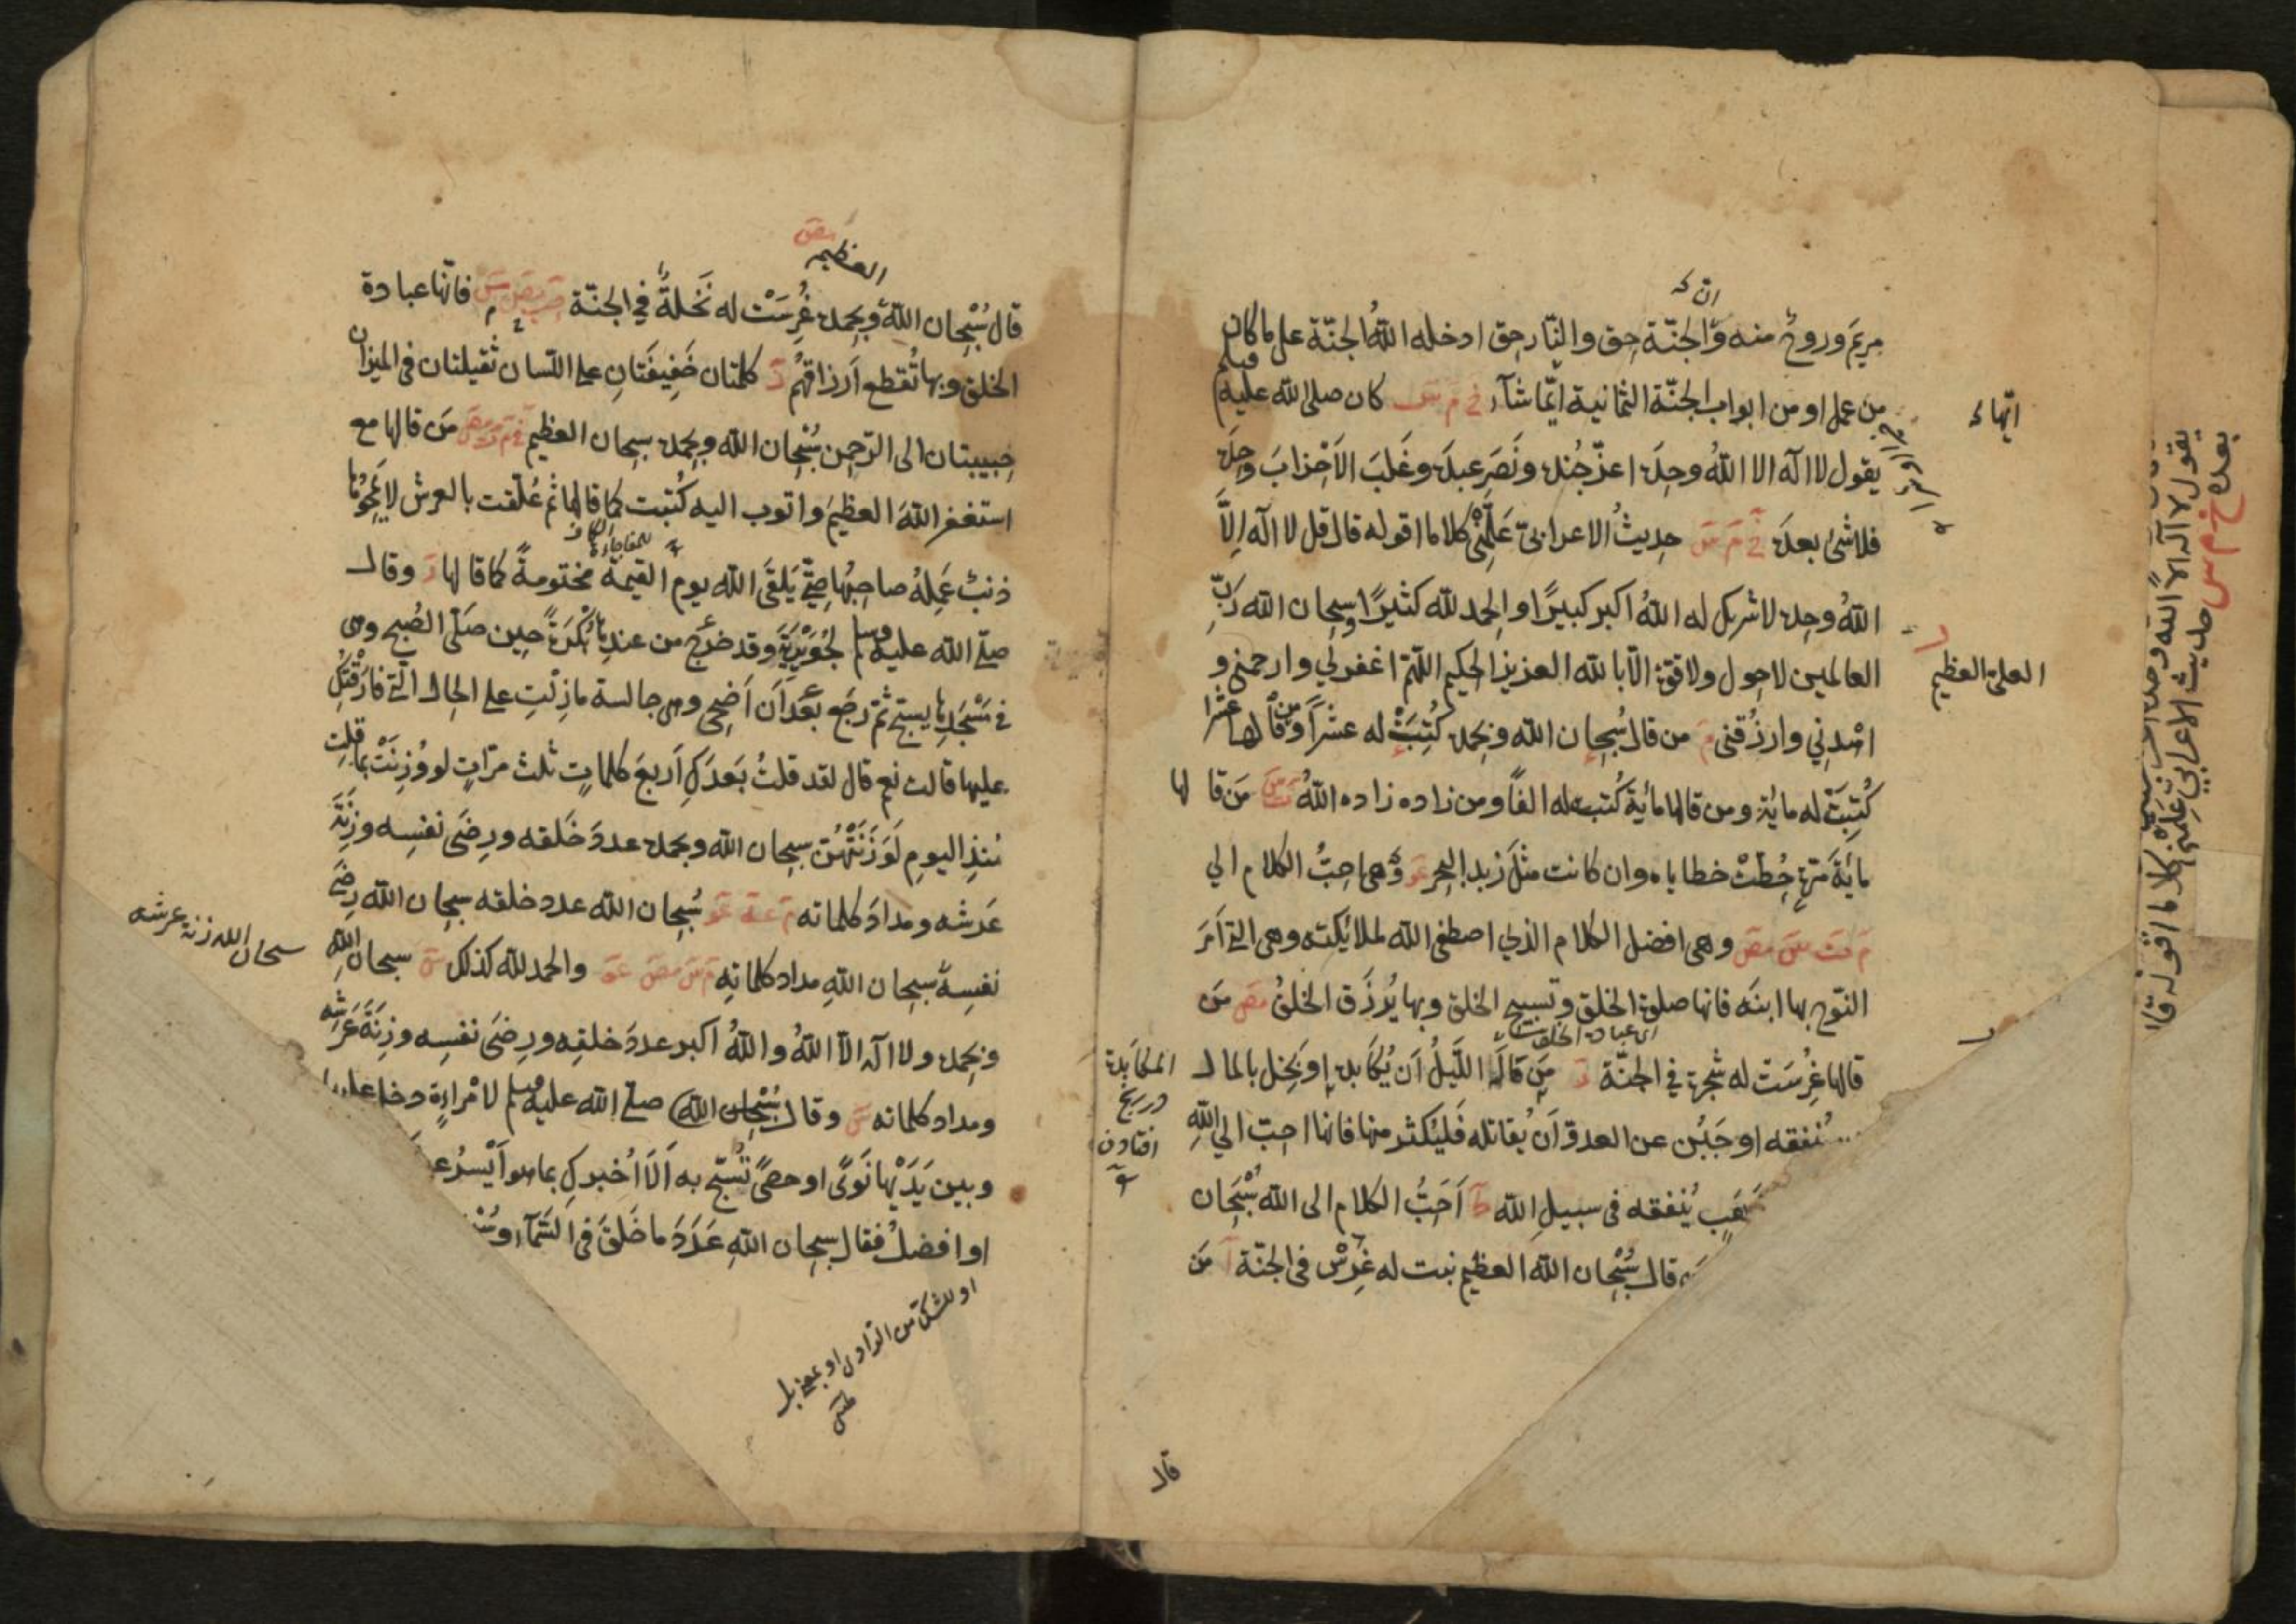 ان
مريَم وروحٌ منه والجنّة حق والنّار حق ادخله اللهُ الجنّة على ما كان
من عمل او من ابواب الجنّة الثمانية ايّها شآء خ م س كان صلى الله عليه وسلم
يقول لا اله الا اللهُ وحدَه اعزّ جُنده ونَصَر عبده وغَلَبَ الاَحْزابَ وحدَه
فلا شئ بعدَه خ م س حديثُ الاعرابىّ عَلِّمْنى كلاما اقوله قال قل لا اله اِلّا
اللهُ وحده لا شريك له اللهُ اكبر كبيرًا والحمد لله كثيرًا وسبحان الله ربِّ
العالمين لا حول ولا قوّة الّا بالله العزيز الحكيم اللّهمّ اغفر لي وارحمني و
اهْدِني وارزُقني م من قال سُبحان الله وبحمده كُتِبَتْ له عشرًا ومن قالها عشرا
كُتِبَتْ له مائة ومن قالها مائةً كُتبت له الفًا ومن زاده زاده اللهُ ت س مَن قالها
مائَةَ مرّةٍ حُطّتْ خطاياه وان كانت مثلَ زبد البحر عو وهى احبُّ الكلام الي
م ت س مص وهى افضل الكلام الذي اصطفى الله لملائكته وهى التى اَمَرَ
النّوح بها ابنَه فانها صلوة الخلق وتسبيح الخلق وبها يُرزَق الخلقُ مص مَن
اى عبادة الخلق
قالها غُرِسَت له شجرة في الجنّة ر مَن هَالَهُ اللّيلُ اَن يُكَابده او بَخِل بالمال
يُنفقه او جَبُن عن العدوّ اَن يُقاتله فَليُكثر منها فانها احبّ الي اللهِ
ذهَبٍ يُنفقه فى سبيلِ الله ط اَحَبُّ الكلام الى الله سُبْحَان
قال سُبْحان الله العظيم نبت له غَرْسٌ فى الجنّة أ مَن
ايّها
العلىّ العظيم
المكابدة
دررنج
افتادن
بعده خ م س حديث الاعرابي علّمنى كلاما اقوله قا
يقول لا اله الا الله وحده
قال
العظيم مص
قال سُبْحان اللهِ وبحمده غُرِسَتْ له نَخلةٌ في الجنّة حب مص س فانّها عبادة
الخلق وبها تُقطع اَرزاقهُم ر كلمتان خَفِيفَتَانِ على اللّسان ثقيلتان فى الميزان
حبيبتان الى الرّحمن سُبْحان الله وبحمده سبحان العظيم خ م ت مص مَن قالها مع
استغفر اللهَ العظيمَ واتوب اليه كُتبت كما قالها ثم عُلّقت بالعرش لا يَمْحُوْها
ذنبٌ عَمِلَهُ صاحِبُها حتّى يَلقَى الله يوم القيمة مختومةً كما قالها ر وقال
صلّى الله عليه وسلم لجُوَيْرِيَةَ وقد خرَج من عندِها بُكْرَةً حين صَلّى الصُبح وهى
فى مَسْجَدِها يسبح ثمّ رجَع بعْدَ اَن اَضحى وهى جالسة مازِلْتِ على الحال الّتى فارَقْتُكِ
عليها قالت نعم قال لقد قلتُ بَعدَكِ اَربعَ كلماتٍ ثلث مرّاتٍ لو وُزِنَتْ بما قلتِ
مُنذِ اليومِ لَوَزَنَتْهُنّ سبحان الله وبحمده عددَ خَلقه ورِضَى نفسِه وزِنَةَ
عَرشه ومدادَ كلماته م عه عو سُبحان الله عدد خلقه سبحان الله رِضَى
نفسِه سبحان اللهِ مداد كلماتِهِ م س مص عو والحمد لله كذلك س سبحان اللهِ
وبحمده ولا اله الّا اللهُ واللهُ اكبر عددَ خلقِه ورِضَى نفسِه وزِنَةَ عَرشِه
ومداد كلماته س وقال سُبْحان الله صلّى الله عليه وسلم لامْراءةٍ دخل عليها
وبين يَدَيْها نَوًى او حصًى تُسَبّح به اَلَا اُخبركِ بما هو اَيْسرُ عـ
او افضلُ فقال سبحان اللهِ عَدَدَ ما خَلقَ فى السّمآء وسُبْـ
سبحان الله زنة عرشه
او للشك من الراوى او بمعنى بل